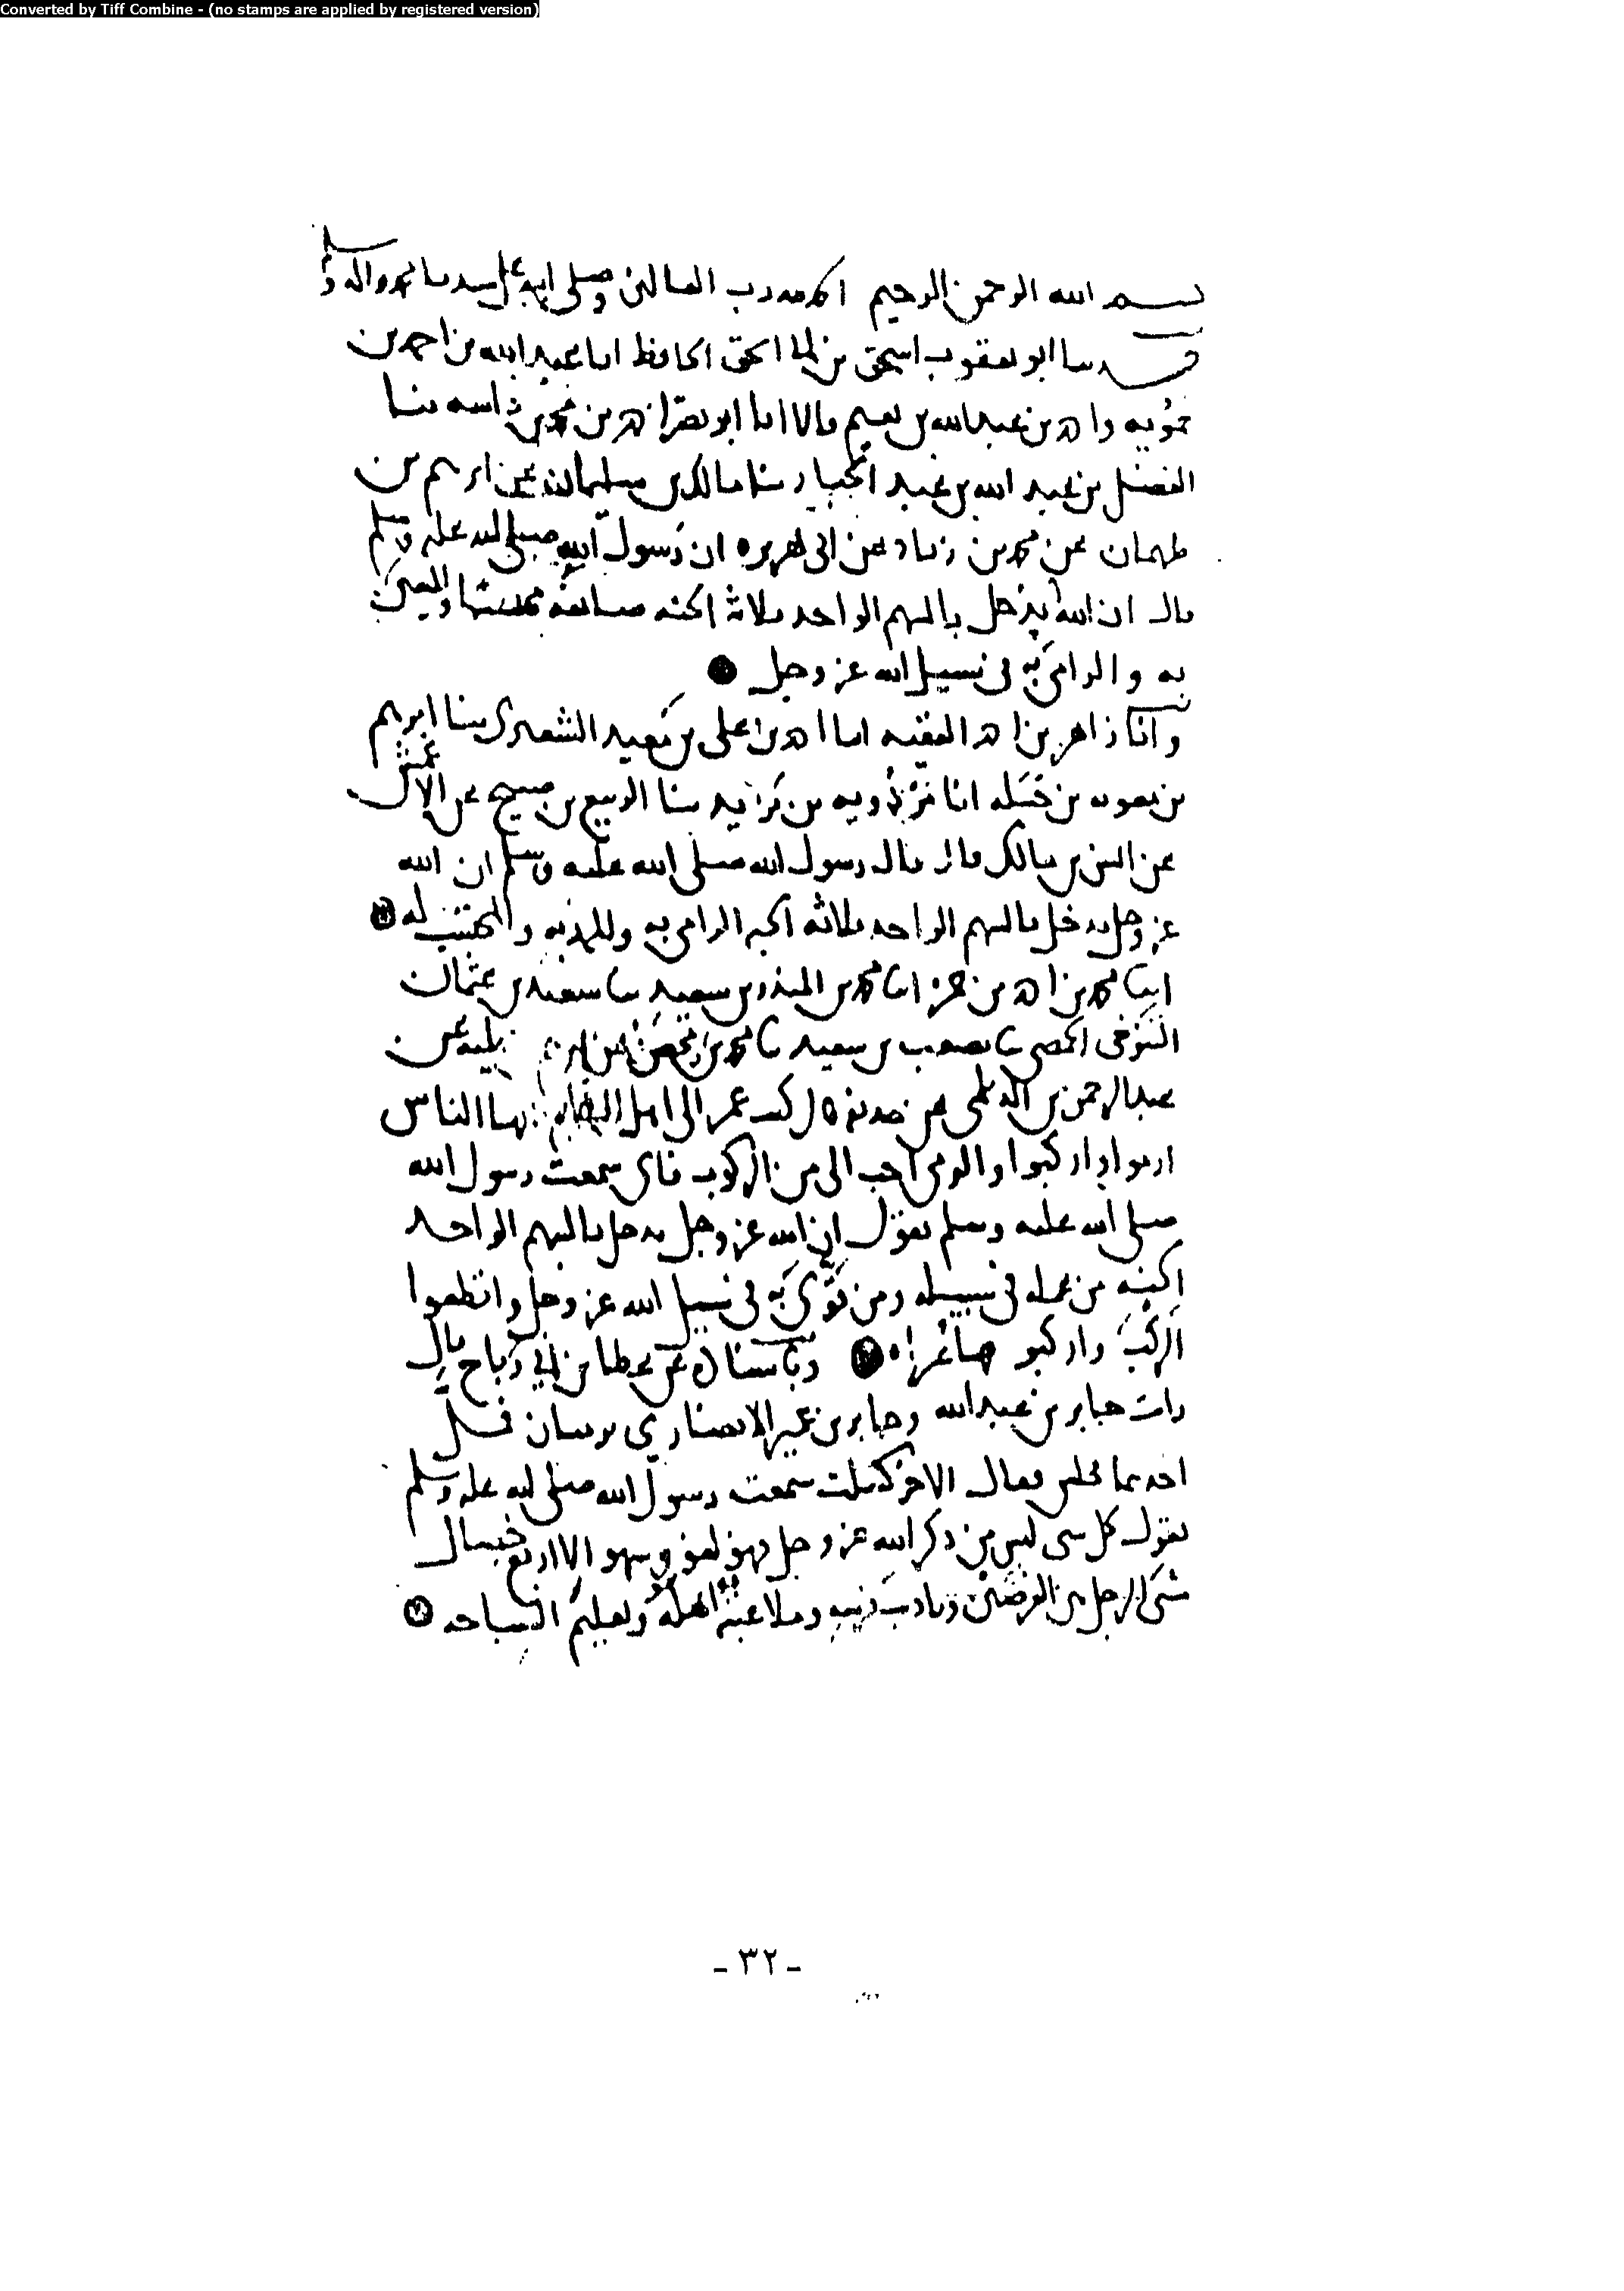 Converted by Tiff Combine - (no stamps are applied by registered version)
بسم الله الرحمن الرحيم الحمد لله رب العالمين وصلى الله على سيدنا محمد واله وسلم
حدثنا ابو يعقوب اسحق بن الحافظ انا عبد الله بن احمد بن
حمويه واحمد بن عبد الله بن نعيم قالا انا ابو نصر احمد بن محمد بن ثنا
الفضل بن عبد الله بن عبد الجبار ثنا مالك بن سليمان عن ابرهيم بن
طهمان عن محمد بن زياد عن ابي هريره ان رسول الله صلى الله عليه وسلم
قال ان الله يدخل بالسهم الواحد ثلاثة الجنه صانعه محتسبا والمعين
به والرامي به في سبيل الله عز وجل
وانا زاهر بن احمد الفقيه انا احمد بن علي بن معبد الشعيري ثنا ابرهيم
بن انا بن ثنا الربيع بن صبيح عن الاعمش
عن انس بن مالك قال قال رسول الله صلى الله عليه وسلم ان الله
عز وجل يدخل بالسهم الواحد ثلاثه الجنه الرامي به والممد به والمحتسب له
انا محمد بن احمد بن حمزه انا محمد بن المنذر بن سعيد ثنا سعيد بن عثمان
التنوخي الحمصي ثنا مصعب بن سعيد ثنا محمد بن محصن عن ابرهيم بن عبلة عن
عبد الرحمن بن الديلمي عن حذيفه قال كتب عمر الى اهل الشام ايها الناس
ارموا واركبوا والرمي احب الي من الركوب فاني سمعت رسول الله
صلى الله عليه وسلم يقول ان الله عز وجل يدخل بالسهم الواحد
الجنه من عمله في سبيله ومن قوى به في سبيل الله عز وجل واقطعوا
الركب واركبو
عن عطا بن ابي رباح قال
رات جابر بن عبد الله وجابر بن عمير الانصاري يرميان فمل
احدهما فجلس فقال الاخر كسلت سمعت رسول الله صلى الله عليه وسلم
يقول كل شي ليس من ذكر الله عز وجل فهو لغو وسهو الا اربع خصال
مشى الرجل بين الغرضين وتاديب فرسه وملاعبة اهله وتعليم السباحه
- ٣٢ -